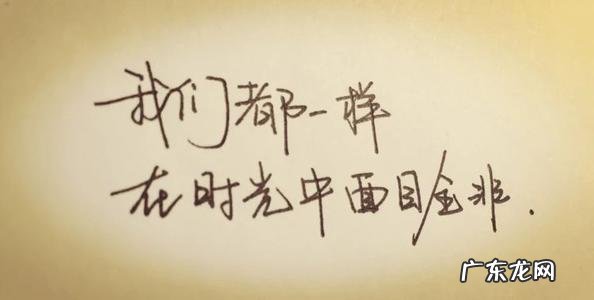 我们都一样
在时光中面目全非.
广东龙网